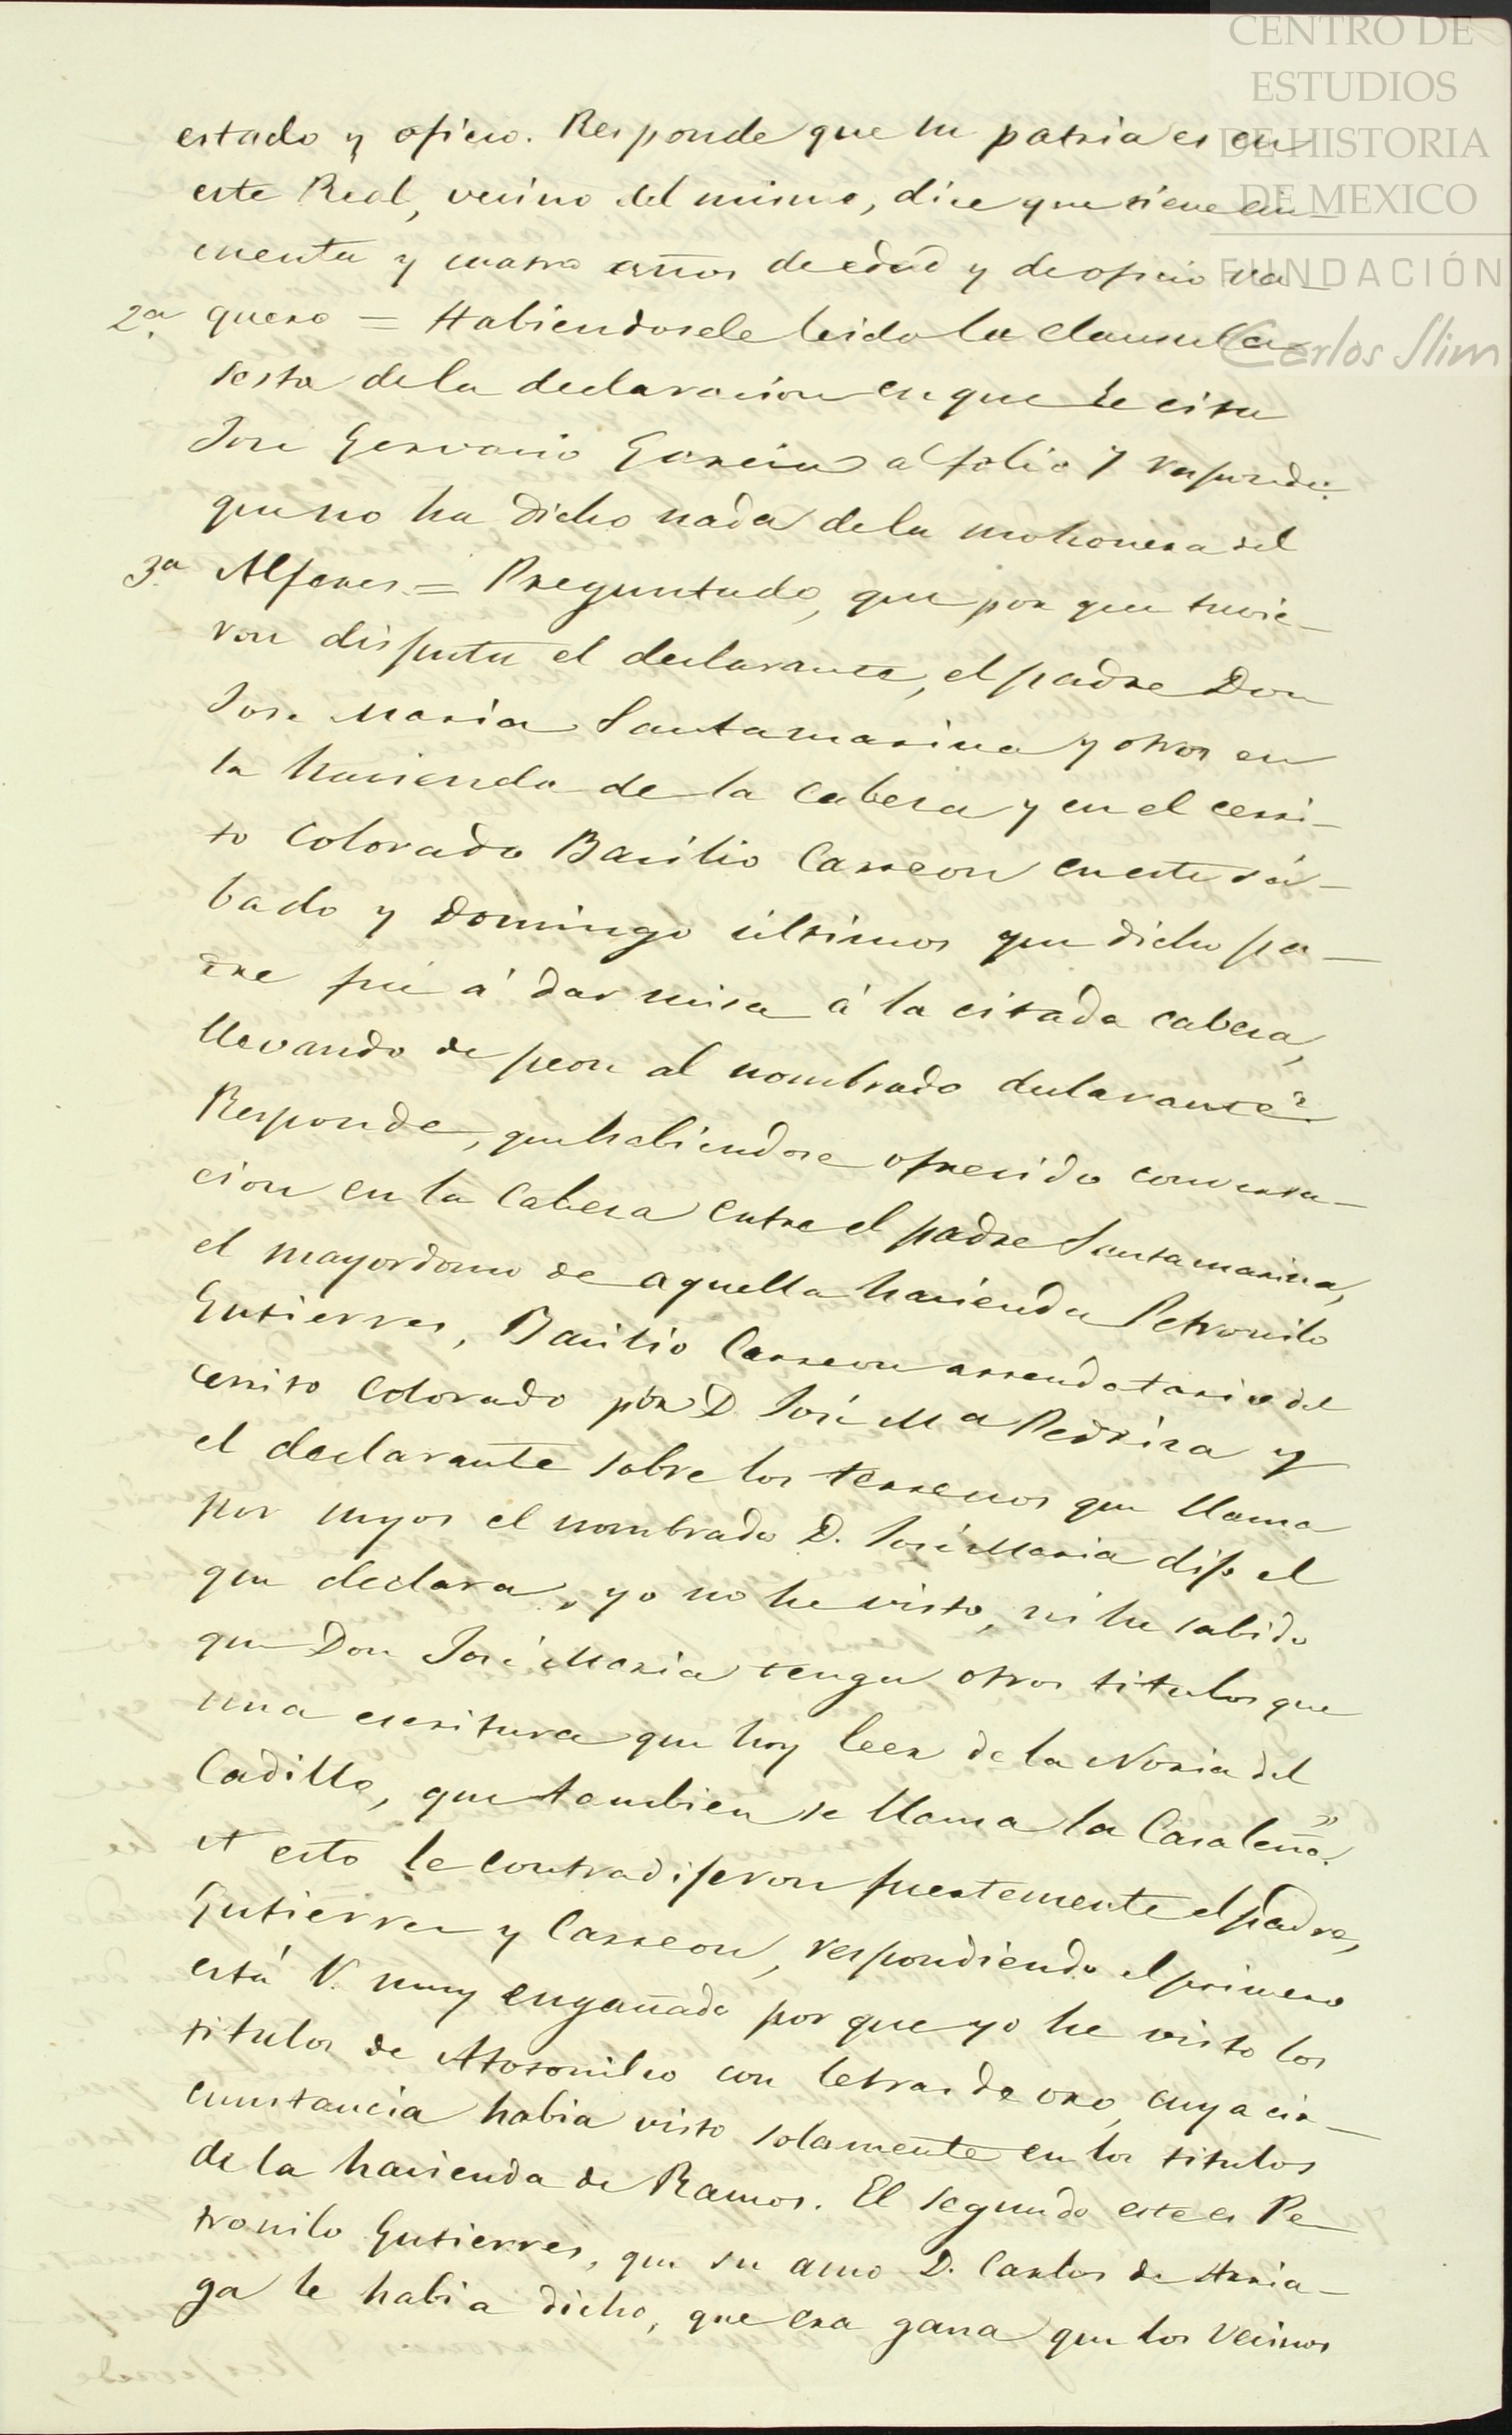 CENTRO DE
ESTUDIOS
DE HISTORIA
DE MEXICO
FUNDACIÓN
Carlos Slim
estado y oficio. Responde que su patria es en
este Real, vecino del mismo, dice que tiene cin-
cuenta y cuatro años de edad y de oficio va-
2ª. quero = Habiendosele leido la clausula
sesta de la declaracion en que le cita
José Gervacio Garcia al folio 7 responde:
que no ha dicho nada de la mohonera del
3ª Alferes. = Preguntado, que por que tuvie-
ron disputa el declarante, el padre Don
José Maria Santamarina y otros en
la hacienda de la Cabesa y en el cerri-
to Colorado Bacilio Carreon en este sá-
bado y Domingo últimos que dicho pa-
dre fué á dar misa á la citada cabesa,
llevando de peon al nombrado declarante?
Responde, que habiendose ofrecido conversa-
cion en la Cabesa entre el padre Santamarina,
el mayordomo de aquella hacienda Petronilo
Gutierres, Bacilio Carreon arrendatario del
cerrito Colorado por D. José Ma Pedrisa y
el declarante sobre los terrenos que llama
por suyos el nombrado D. José Maria dijo el
que declara, "yo no he visto, ni he sabido
que Don José Maria tenga otros titulos que
una escritura que hoy leen de la Noria del
Cadillo, que tambien se llama la Casaleña."
A esto le contradijeron fuertemente el padre,
Gutierres y Carreon, respondiendo el primero
está V. muy engañado por que yo he visto los
titulos de Atotonilco con letras de oro, cuya cir-
cunstancia habia visto solamente en los titulos
de la hacienda de Ramos. El segundo este es Pe-
tronilo Gutierres, que su amo D. Carlos de Arria-
ga le habia dicho, que era gana que los vecinos